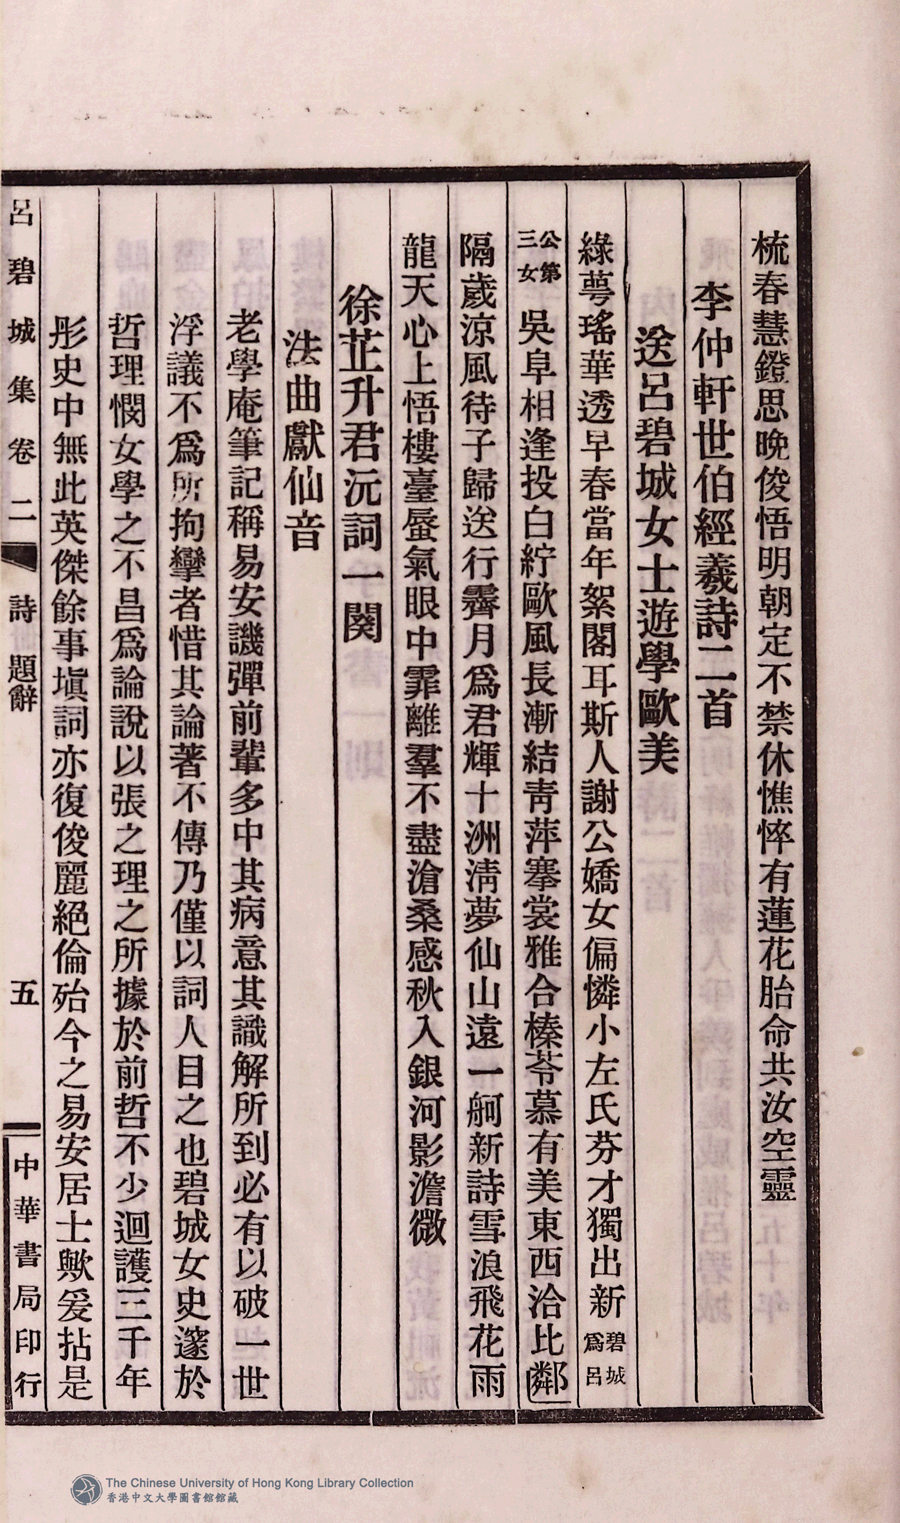 梳春慧鐙思晚俊悟明朝定不禁休憔悴有蓮花胎命共汝空靈
李仲軒世伯經羲詩二首
送呂碧城女士遊學歐美
綠萼瑤華透早春當年絮閣耳斯人謝公嬌女偏憐小左氏芬才獨出新碧城爲呂
公第三女吳阜相逢投白紵歐風長漸結靑萍搴裳雅合榛苓慕有美東西洽比鄰
隔歲涼風待子歸送行霽月爲君輝十洲淸夢仙山遠一舸新詩雪浪飛花雨
龍天心上悟樓臺蜃氣眼中霏離羣不盡滄桑感秋入銀河影澹微
徐芷升君沅詞一闋
法曲獻仙音
老學庵筆記稱易安譏彈前輩多中其病意其識解所到必有以破一世
浮議不爲所拘攣者惜其論著不傳乃僅以詞人目之也碧城女史邃於
哲理憫女學之不昌爲論說以張之理之所據於前哲不少迴護三千年
彤史中無此英傑餘事塡詞亦復俊麗絕倫殆今之易安居士歟爰拈是
呂碧城集卷二 詩 題辭 五 中華書局印行
The Chinese University of Hong Kong Library Collection
香港中文大學圖書館館藏